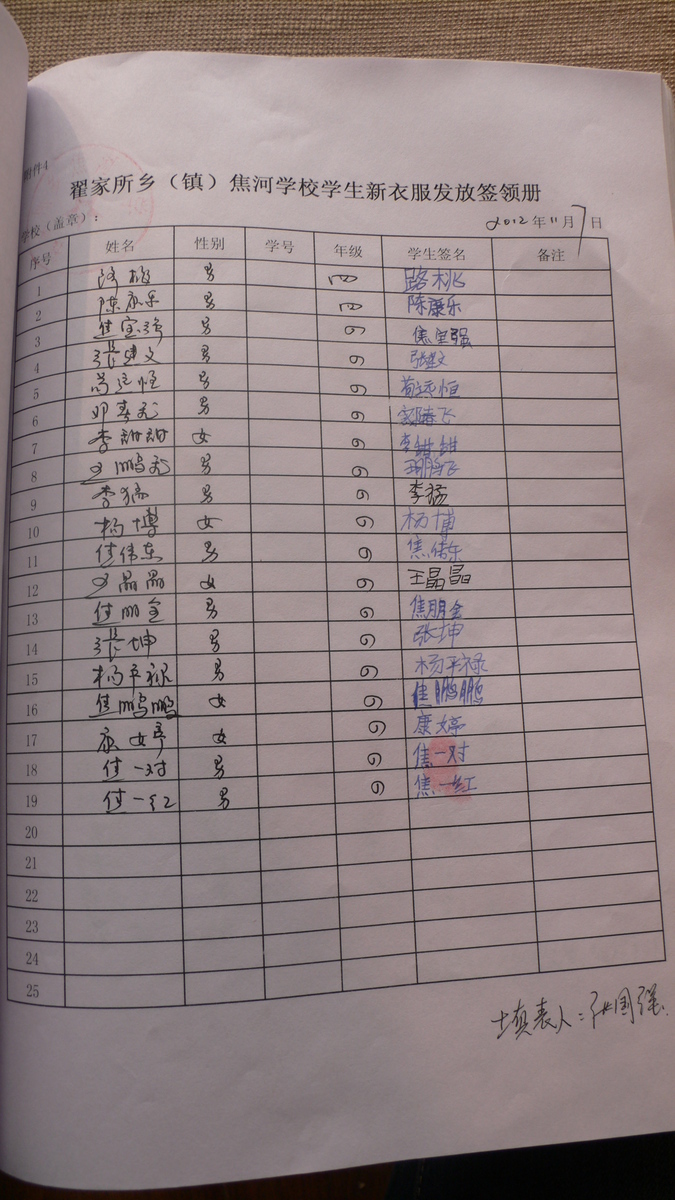 附件4
翟家所乡（镇）焦河学校学生新衣服发放签领册
学校（盖章）： 2012年11月7日
序号 姓名 性别 学号 年级 学生签名 备注
1 男 四 路桃
2 陈康乐 男 四 陈康乐
3 焦宝强 男 〃 焦宝强
4 张建文 男 〃 张建文
5 苟远恒 男 〃 苟远恒
6 邓春飞 男 〃
7 李甜甜 女 〃 李甜甜
8 王鹏飞 男 〃 王鹏飞
9 李猛 男 〃 李猛
10 杨博 女 〃 杨博
11 焦伟东 男 〃 焦伟东
12 王晶晶 女 〃 王晶晶
13 焦朋金 男 〃 焦朋金
14 张坤 男 〃 张坤
15 杨平禄 男 〃 杨平禄
16 焦鹏鹏 女 〃 焦鹏鹏
17 康婷 女 〃 康婷
18 焦一对 男 〃 焦一对
19 焦一红 男 〃 焦一红
20
21
22
23
24
25
填表人：张国强